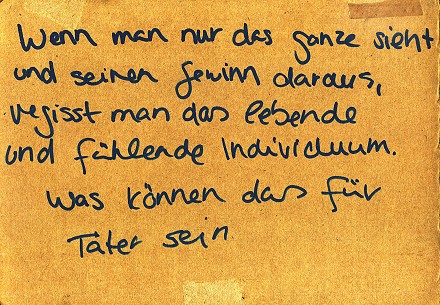 Wenn man nur das ganze sieht
und seinen Gewinn daraus,
vegisst man das lebende
und fühlende Individuum.
Was können das für
Täter sein